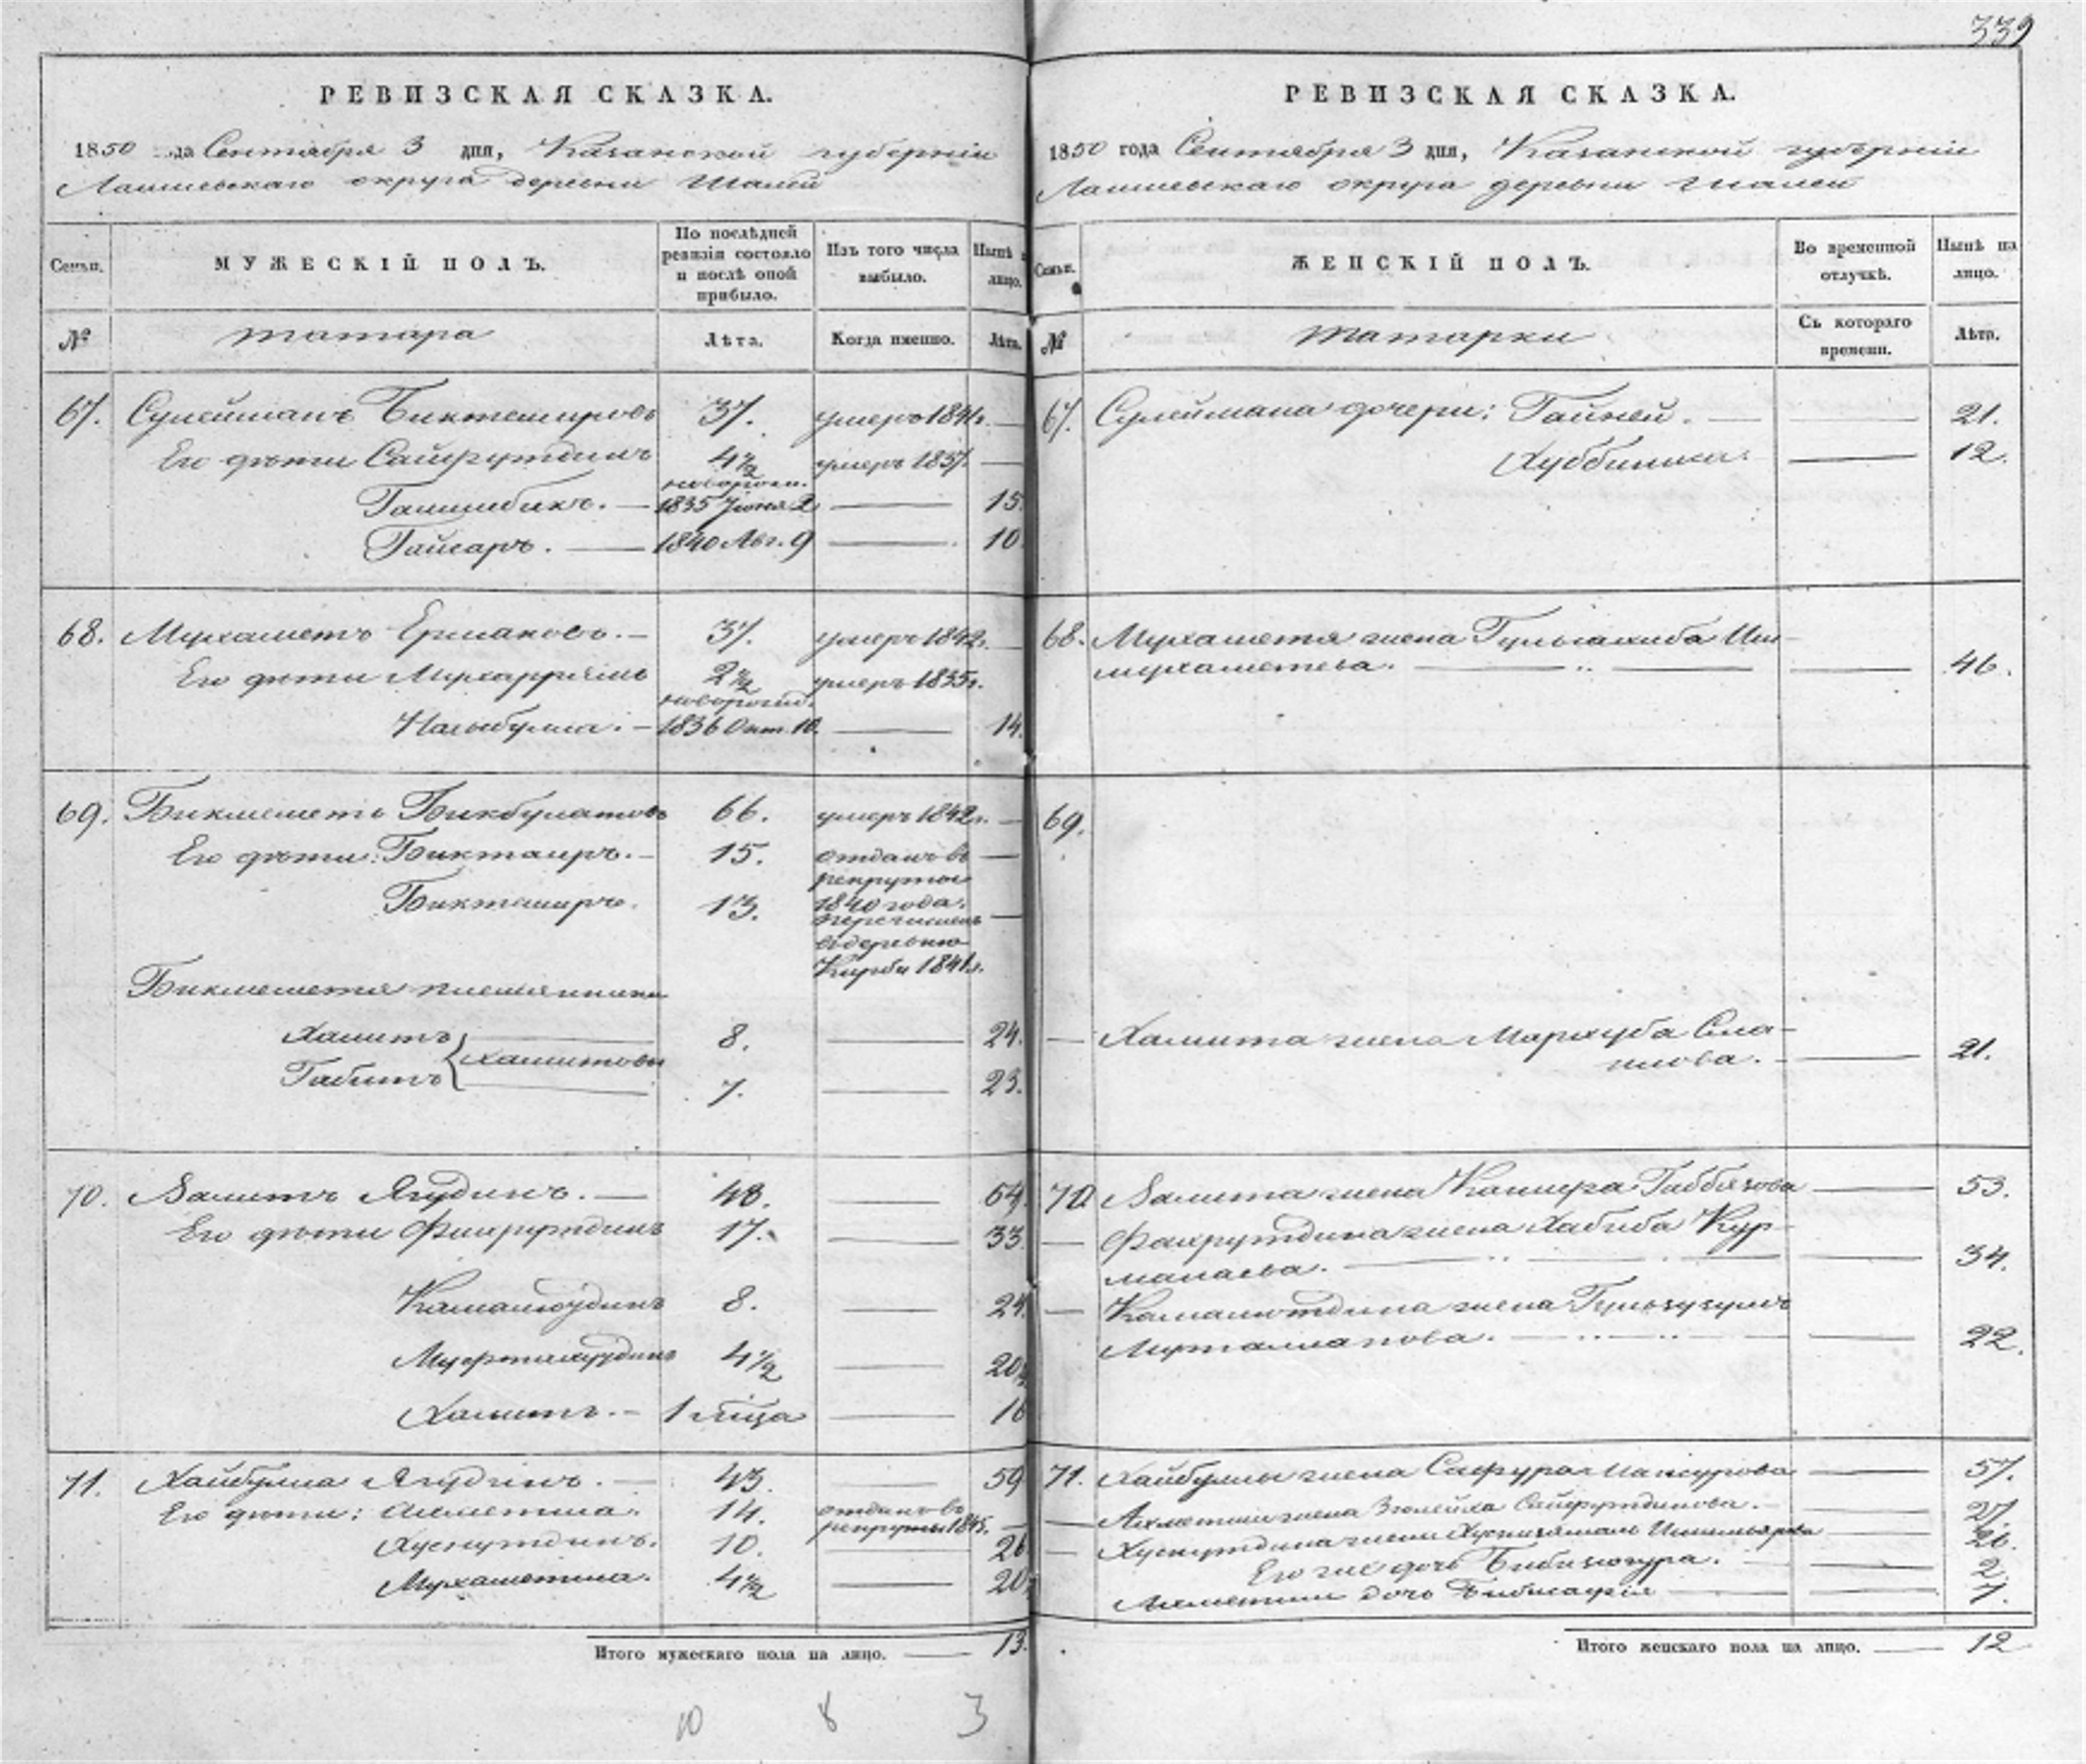 339
РЕВИЗСКАЯ СКАЗКА.
1850 года Сентября 3 дня, Казанской губернiи
Лаишевскаго округа деревни Шалей
Семьи.
МУЖЕСКIЙ ПОЛЪ.
По послѣдней ревизiи состояло и послѣ оной прибыло.
Изъ того числа выбыло.
Нынѣ на лицо.
№
татара
Лѣта.
Когда именно.
Лѣта.
67. Сулейманъ Биктемировъ 37. умеръ 1841г. —
Его дѣти Сайфутдинъ 4½ умеръ 1837. —
новорожд.
1835 Іюня 2 — 15.
Гайсаръ. — 1840 Авг. 9 — 10.
68. Мухаметъ Ермаковъ. — 37. умеръ 1842г. —
Его дѣти Мухаррямъ 2½ умеръ 1835г.
новорожд.
Насыбулла. — 1836 Окт. 10. — 14.
69. Бикмеметь Бикбулатовъ 66. умеръ 1842г. —
Его дѣти: Биктаиръ. — 15. отданъ въ —
рекруты
1840 года.
Биктемиръ. 13. перечисленъ —
въ деревню
Кирби 1841г.
Бикмеметя племянники
Хамитъ — 8. — 24.
Хамитовы
Габитъ — 7. — 23.
70. Валитъ Ягудинъ. — 48. — 64.
Его дѣти Фахрутдинъ 17. — 33
Камалюудинъ 8. — 24.
Муфтахуудинъ 4½ — 20½
Халитъ. — 1 мѣсца — 16
71. Хайбулла Ягудинъ. — 43. — 59
Его дѣти: Ахметша. 14. отданъ въ —
рекруты 1845.
Хуснутдинъ. 10. — 26
Мухаметша. 4½ — 20½
Итого мужескаго пола на лицо. — 13.
10 8 3
РЕВИЗСКАЯ СКАЗКА.
1850 года Сентября 3 дня, Казанской губернiи
Лаишевскаго округа деревни Шалей
Семьи.
ЖЕНСКIЙ ПОЛЪ.
Во временной отлучкѣ.
Нынѣ на лицо.
№
татарки
Съ котораго времени.
Лѣта.
67. Сулеймана дочери: Гайней. — — 21.
Хуббиниса. — 12.
68. Мухаметя жена Гульсахиба Иш-
мухаметева. — — 46.
69.
— Хамита жена Мархуба Сма-
илова. — — 21.
70. Валита жена Камера Габбязова — 53.
— Фахрутдина жена Хабиба Кур-
манаева. — — 34.
— Камалютдина жена Гульзузумъ
Мутталлапова. — — 22.
71. Хайбуллы жена Сафура Мансурова — 57.
— Ахметши жена Зюлейха Сайфутдинова. — 27.
— Хуснутдина жена Хуснизямалъ Ишмыярова — 26.
Его же дочь Бибизюгура. — 2.
Ахметши дочь Бибисафiя — 7.
Итого женскаго пола на лицо. — 12